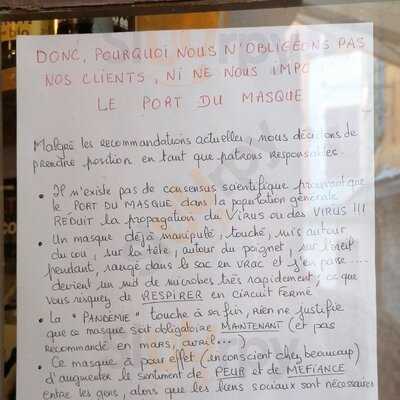 DONC, POURQUOI NOUS N'OBLIGEONS PAS
NOS CLIENTS, NI NE NOUS IMPO
LE PORT DU MASQUE
Malgré les recommandations actuelles, nous décidons de
prendre position en tant que patrons responsables.
• Il n'existe pas de consensus scientifique prouvant que
le PORT DU MASQUE dans la population générale
REDUIT la propagation du VIRUS ou des VIRUS !!!
• Un masque déjà manipulé, touché, mis autour
du cou, sur la tête, autour du poignet, sur l'oreil
pendant, rangé dans le sac en vrac et j'en passe....
devient un nid de microbes très rapidement, ce que
vous risquez de RESPIRER en CIRCUIT FERMÉ
• La "PANDEMIE" touche à sa fin, rien ne justifie
que ce masque soit obligatoire MAINTENANT (et pas
recommandé en mars, avril...)
• Ce masque a pour effet (inconscient chez beaucoup)
d'augmenter le sentiment de PEUR et de MEFIANCE
entre les gens, alors que les liens sociaux sont nécessaires